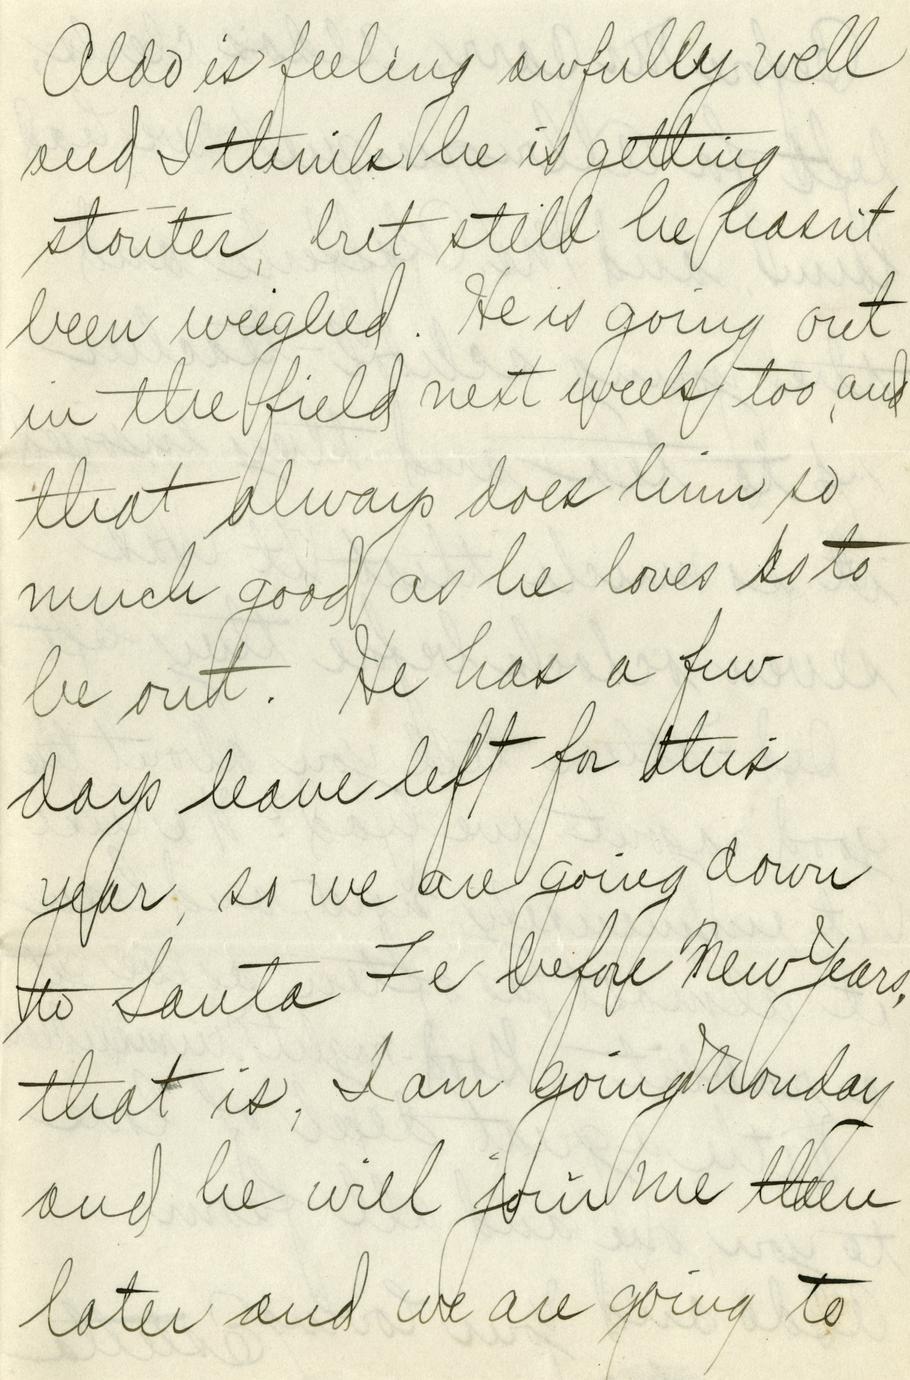 Aldo is feeling awfully well
and I think he is getting
stouter, but still he hasn't
been weighed. He is going out
in the field next week, too, and
that always does him so
much good as he loves so to
be out. He has a few
days leave left for this
year, so we are going down
to Santa Fe before New Years,
that is, I am going Monday
and he will join me then
later and we are going to